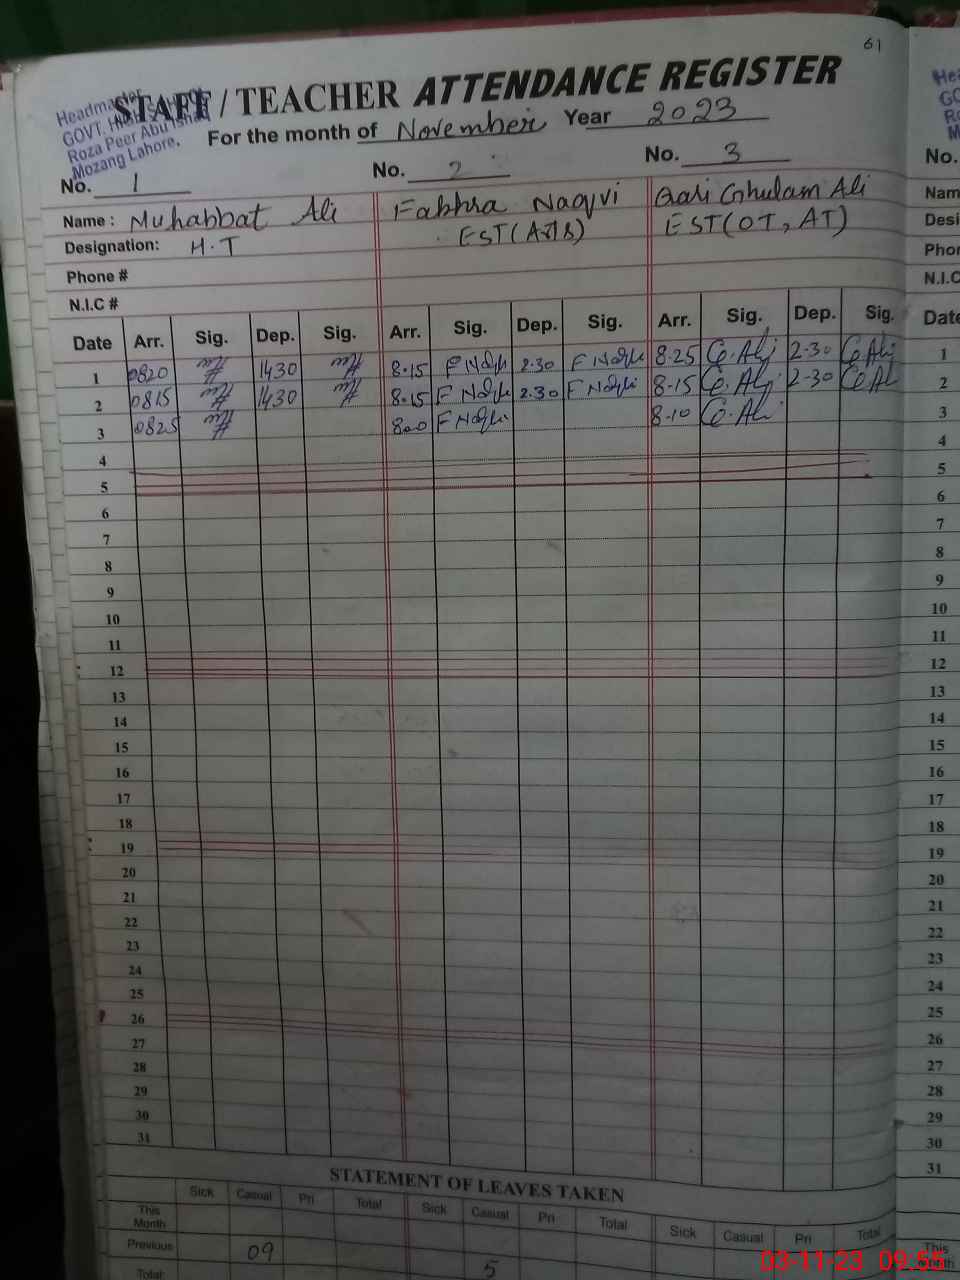 61
STAFF / TEACHER ATTENDANCE REGISTER
Headmaster
GOVT. High
Roza Peer Abu Ishaq
Mozang Lahore.
For the month of November Year 2023
No. 1 No. 2 No. 3
Name : Muhabbat Ali Naqvi Qari Ghulam Ali
Designation: H.T EST(Arts) EST(OT, AT)
Phone #
N.I.C #
Date Arr. Sig. Dep. Sig. Arr. Sig. Dep. Sig. Arr. Sig. Dep. Sig.
1 0820 1430 8.15 F Naqvi 2.30 F Naqvi 8.25 G.Ali 2.30 G Ali
2 0815 1430 8.15 F Naqvi 2.30 F Naqvi 8.15 G.Ali 2.30 G Al
3 0825 8.00 F Naqvi 8.10 G.Ali
4
5
6
7
8
9
10
11
12
13
14
15
16
17
18
19
20
21
22
23
24
25
26
27
28
29
30
31
STATEMENT OF LEAVES TAKEN
Sick Casual Pri Total Sick Casual Pri Total Sick Casual Pri Total
This Month
Previous 09 5
Total:
No.
Nam
Desi
Phon
N.I.C
Date
1
2
3
4
5
6
7
8
9
10
11
12
13
14
15
16
17
18
19
20
21
22
23
24
25
26
27
28
29
30
31
This
Month
03-11-23 09.55